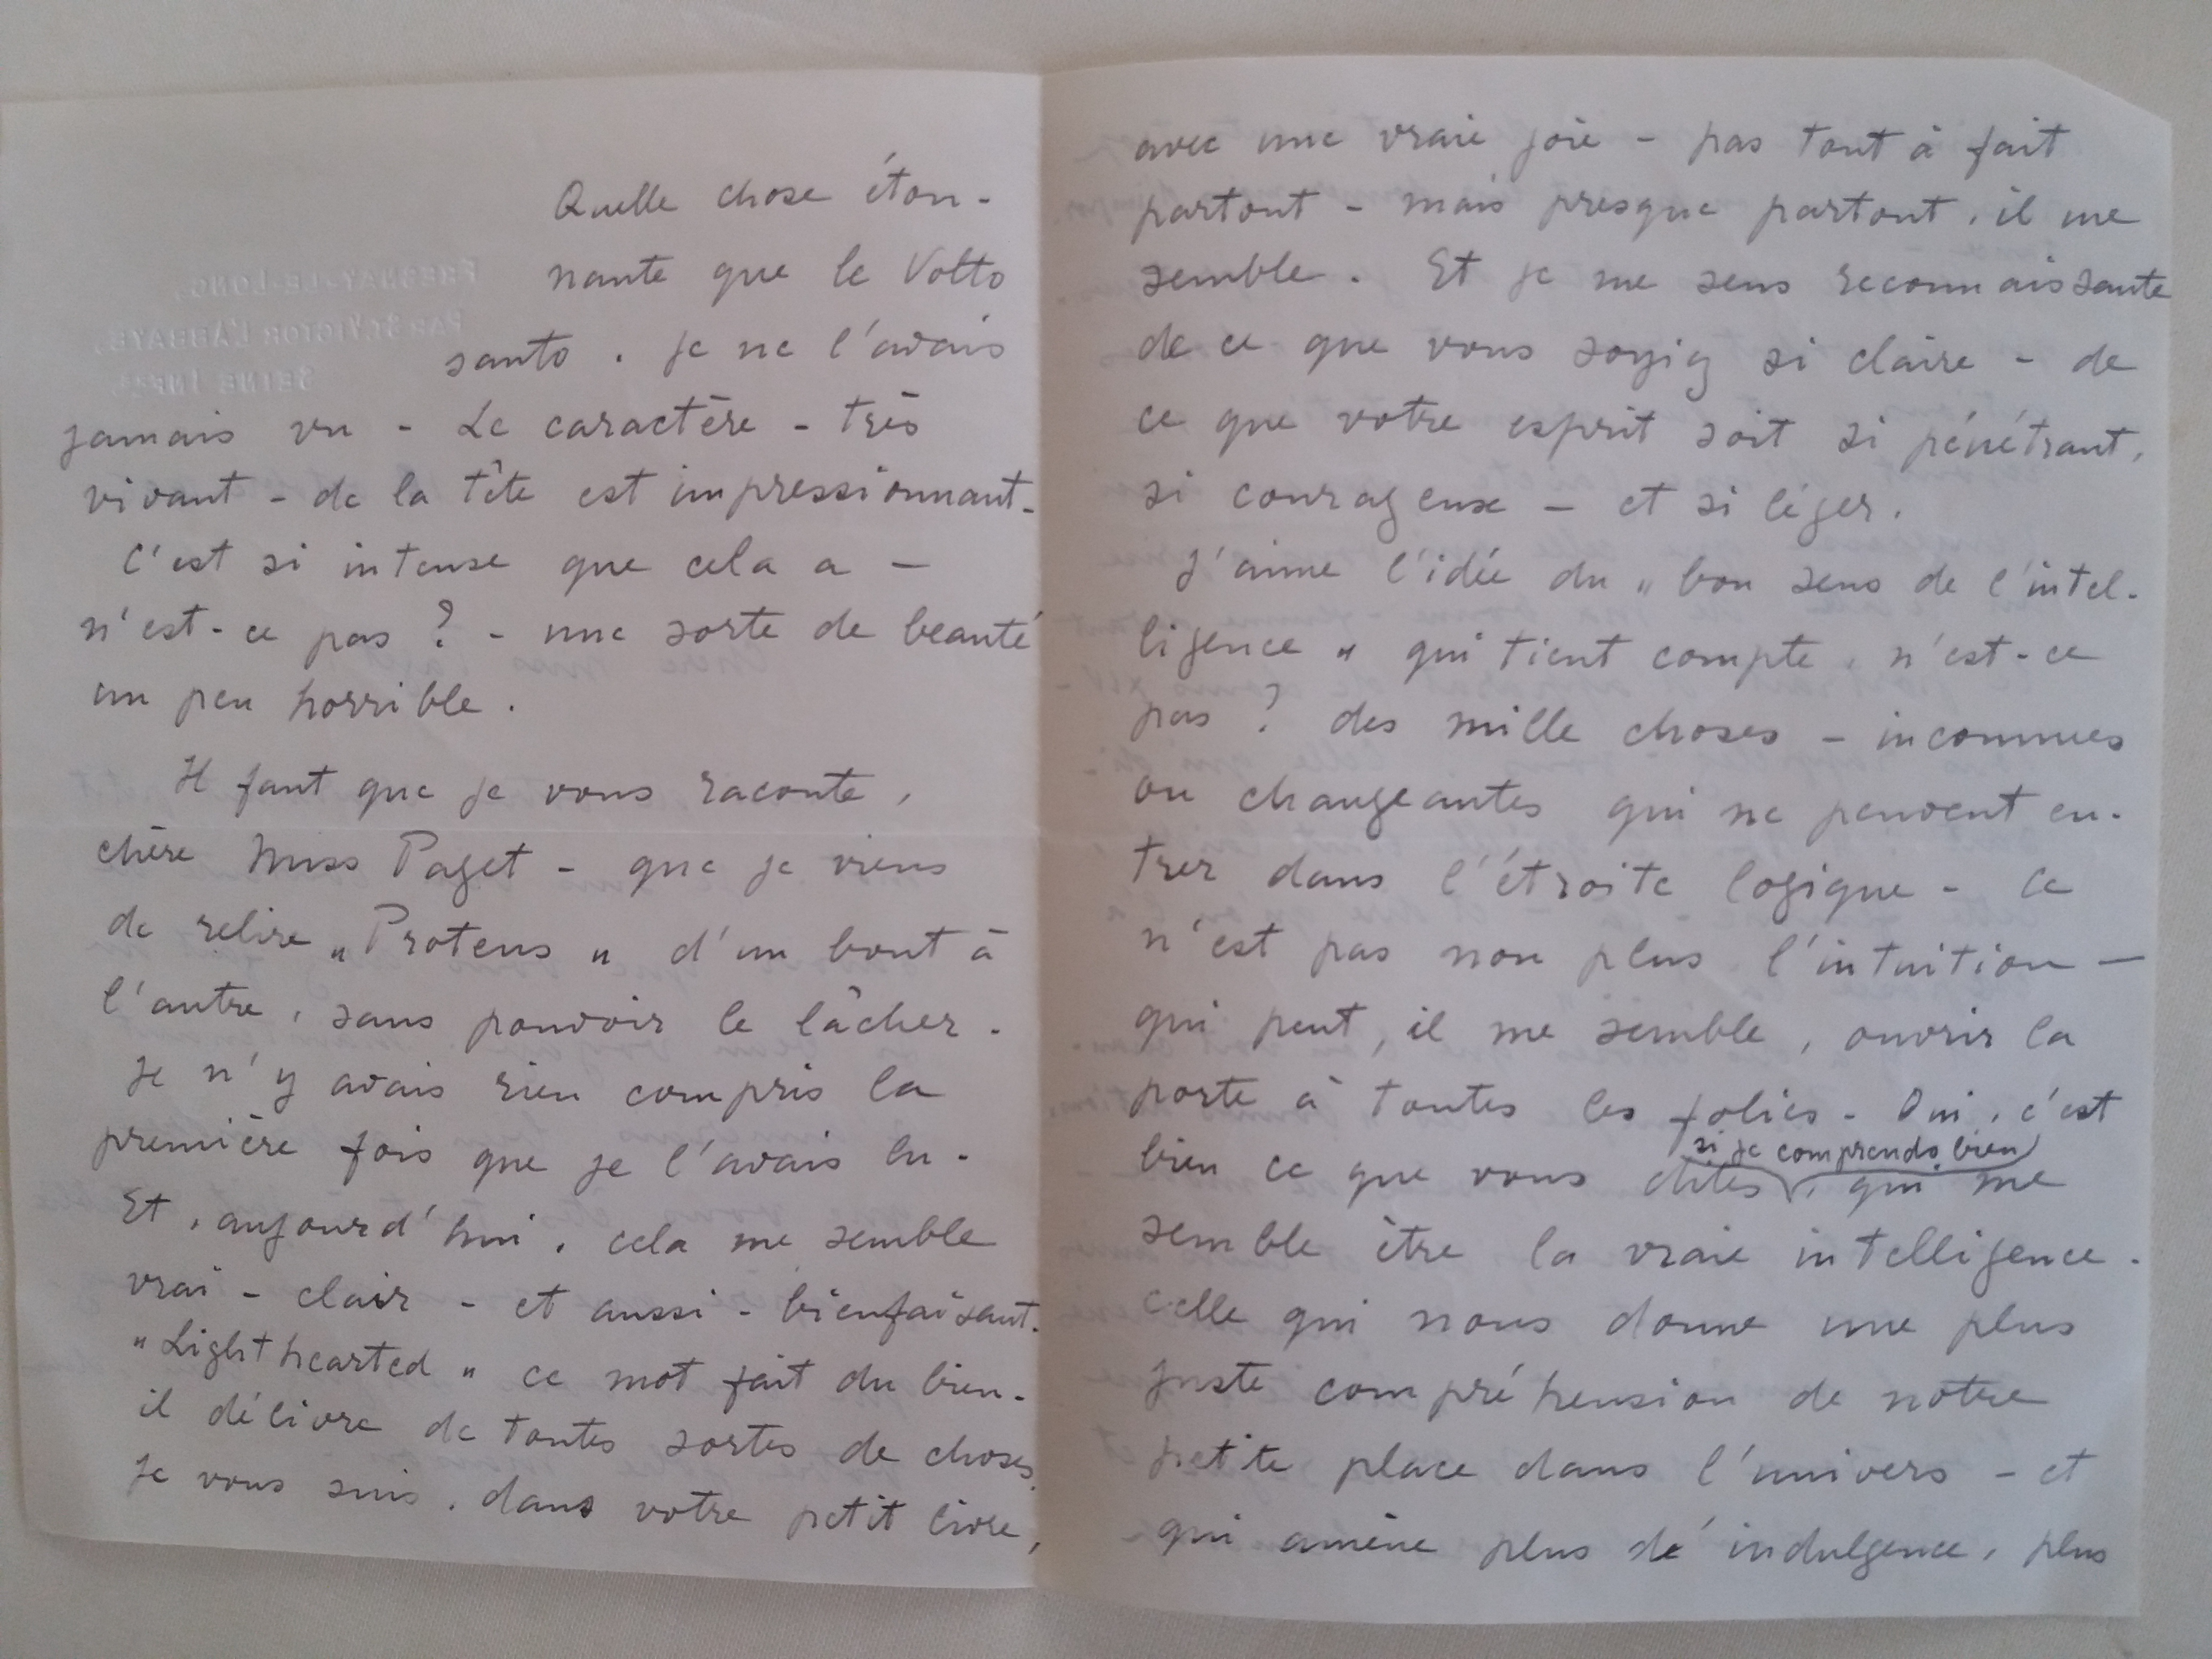 FRESNAY-LE-LONG,
PAR ST VICTOR L'ABBAYE,
SEINE INFRE.
Quelle chose éton-
nante que le Volto
santo. Je ne l'avais
jamais vu - Le caractère - très
vivant - de la tête est impressionnant -
C'est si intense que cela a -
n'est-ce pas ? - une sorte de beauté
un peu horrible.
Il faut que je vous raconte,
chère Miss Paget - que je viens
de relire „Proteus" d'un bout à
l'autre, sans pouvoir le lâcher.
Je n'y avais rien compris la
première fois que je l'avais lu -
Et, aujourd'hui, cela me semble
vrai - clair - et aussi - bienfaisant.
"Lighthearted" ce mot fait du bien -
il délivre de toutes sortes de choses
Je vous suis, dans votre petit livre,
avec une vraie joie - pas tout à fait
partout - mais presque partout, il me
semble. Et je me sens reconnaissante
de ce que vous soyiez si claire - de
ce que votre esprit soit si pénétrant,
si courageux - et si léger.
J'aime l'idée du „bon sens de l'intel-
ligence" qui tient compte, n'est-ce
pas ? des mille choses - inconnues
ou changeantes qui ne peuvent en-
trer dans l'étroite logique - Ce
n'est pas non plus l'intuition -
qui peut, il me semble, ouvrir la
porte à toutes les folies - Oui, c'est
si je comprends bien
bien ce que vous dites, qui me
semble être la vraie intelligence.
celle qui nous donne une plus
juste compréhension de notre
petite place dans l'univers - et
qui amène plus d'indulgence, plus